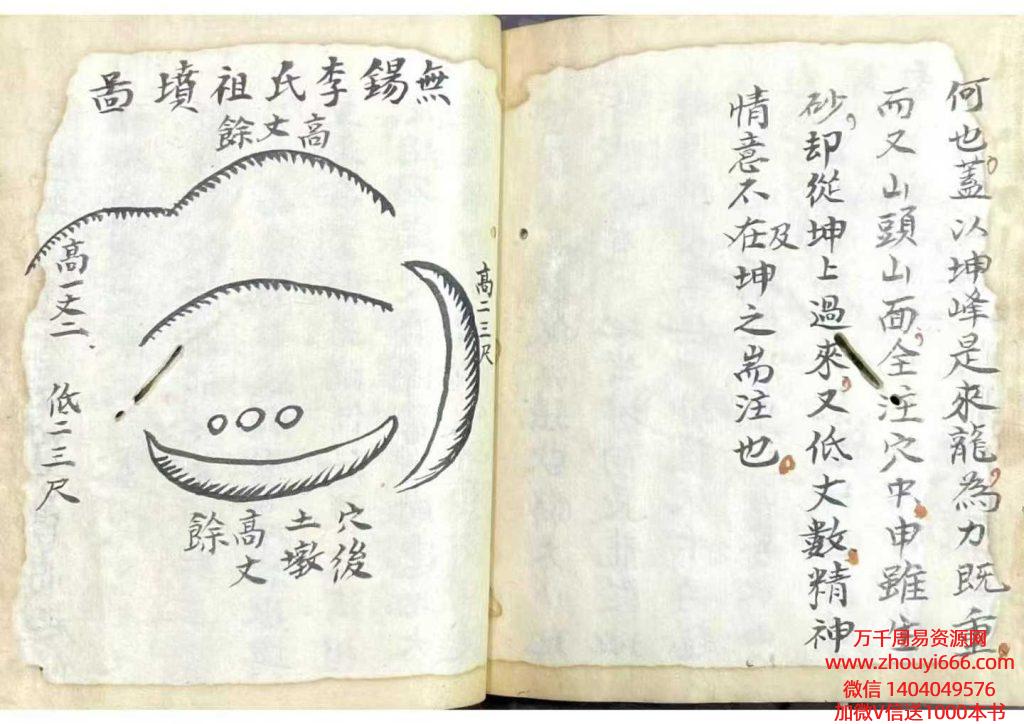 何也蓋以坤峰是來龍為力既重
而又山頭山面全注穴中申雖生
砂却從坤上過來又低丈數精神
情意不在及坤之耑注也
無錫李氏祖墳啚
高丈餘
高一丈二
低二三尺
高二三尺
穴後
土墩
高丈
餘
万千周易资源网
www.zhouyi666.com
微信 1404049576
加微V信送1000本书